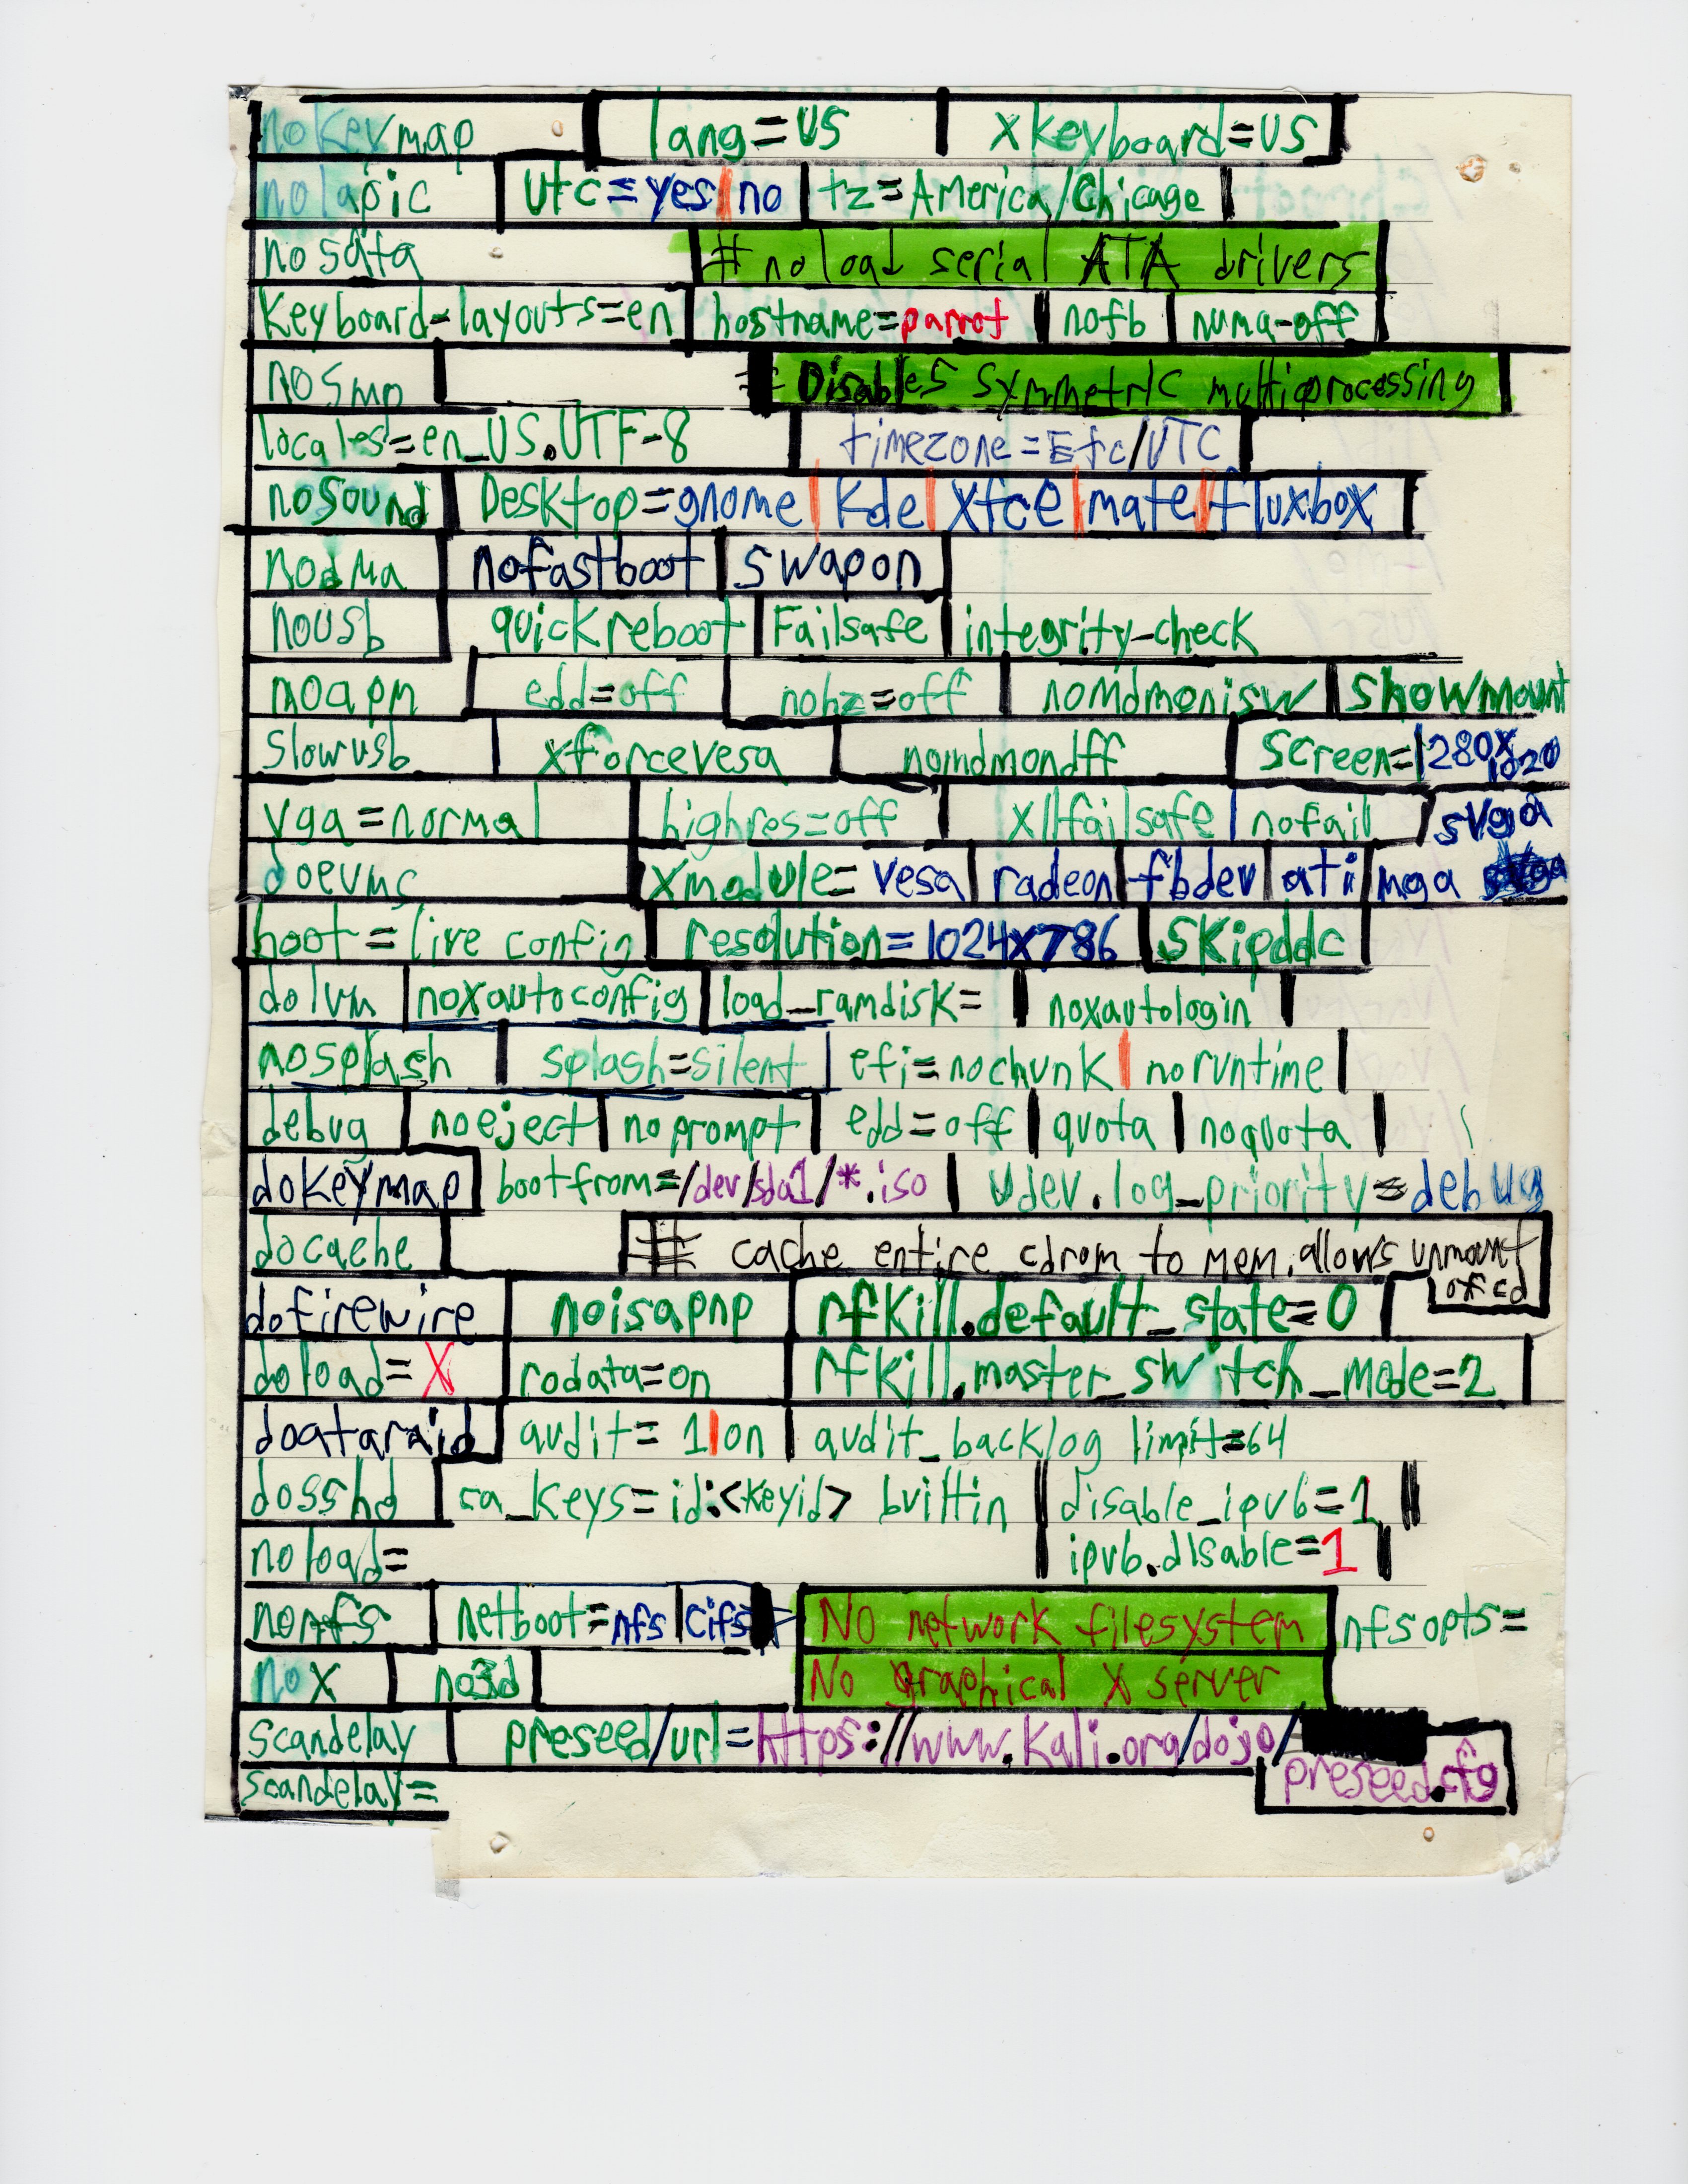 nokeymap lang=US xkeyboard=US
nolapic utc=yes|no tz=America/Chicago
nosata # no load serial ATA drivers
Keyboard-layouts=en hostname=parrot nofb numa-off
nosmp # Disables symmetric multiprocessing
locales=en_US.UTF-8 timezone=Etc/UTC
nosound Desktop=gnome|Kde|xfce|mate|fluxbox
nodma nofastboot swapon
nousb quickreboot Failsafe integrity-check
noapm edd=off nohz=off nomdmonisw showmount
slowusb xforcevesa nomdmondff screen=1280x1020
vga=normal highres=off x11failsafe nofail svga
doevms xmodule=vesa radeon fbdev ati mga
boot=live config resolution=1024x786 skipddc
dolvm noxautoconfig load_ramdisk= noxautologin
nosplash splash=silent efi=nochunk|noruntime
debug noeject noprompt edd=off quota noquota
dokeymap bootfrom=/dev/sda1/*.iso udev.log_priority=debug
docache # cache entire cdrom to mem. allows unmount
of cd
dofirewire noisapnp rfkill.default_state=0
doload=X rodata=on rfkill.master_switch_mode=2
doataraid audit=1|on audit_backlog limit=64
dosshd ca_keys=id:<keyid> builtin disable_ipv6=1
noload= ipv6.disable=1
nonfs netboot=nfs|cifs No network filesystem nfsopts=
nox no3d No graphical X server
scandelay preseed/url=https://www.kali.org/dojo/
preseed.cfg
scandelay=